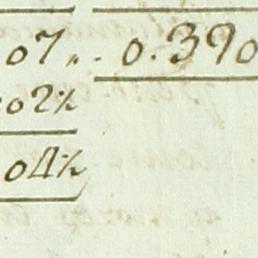 07,, . 0.390
02½
04½